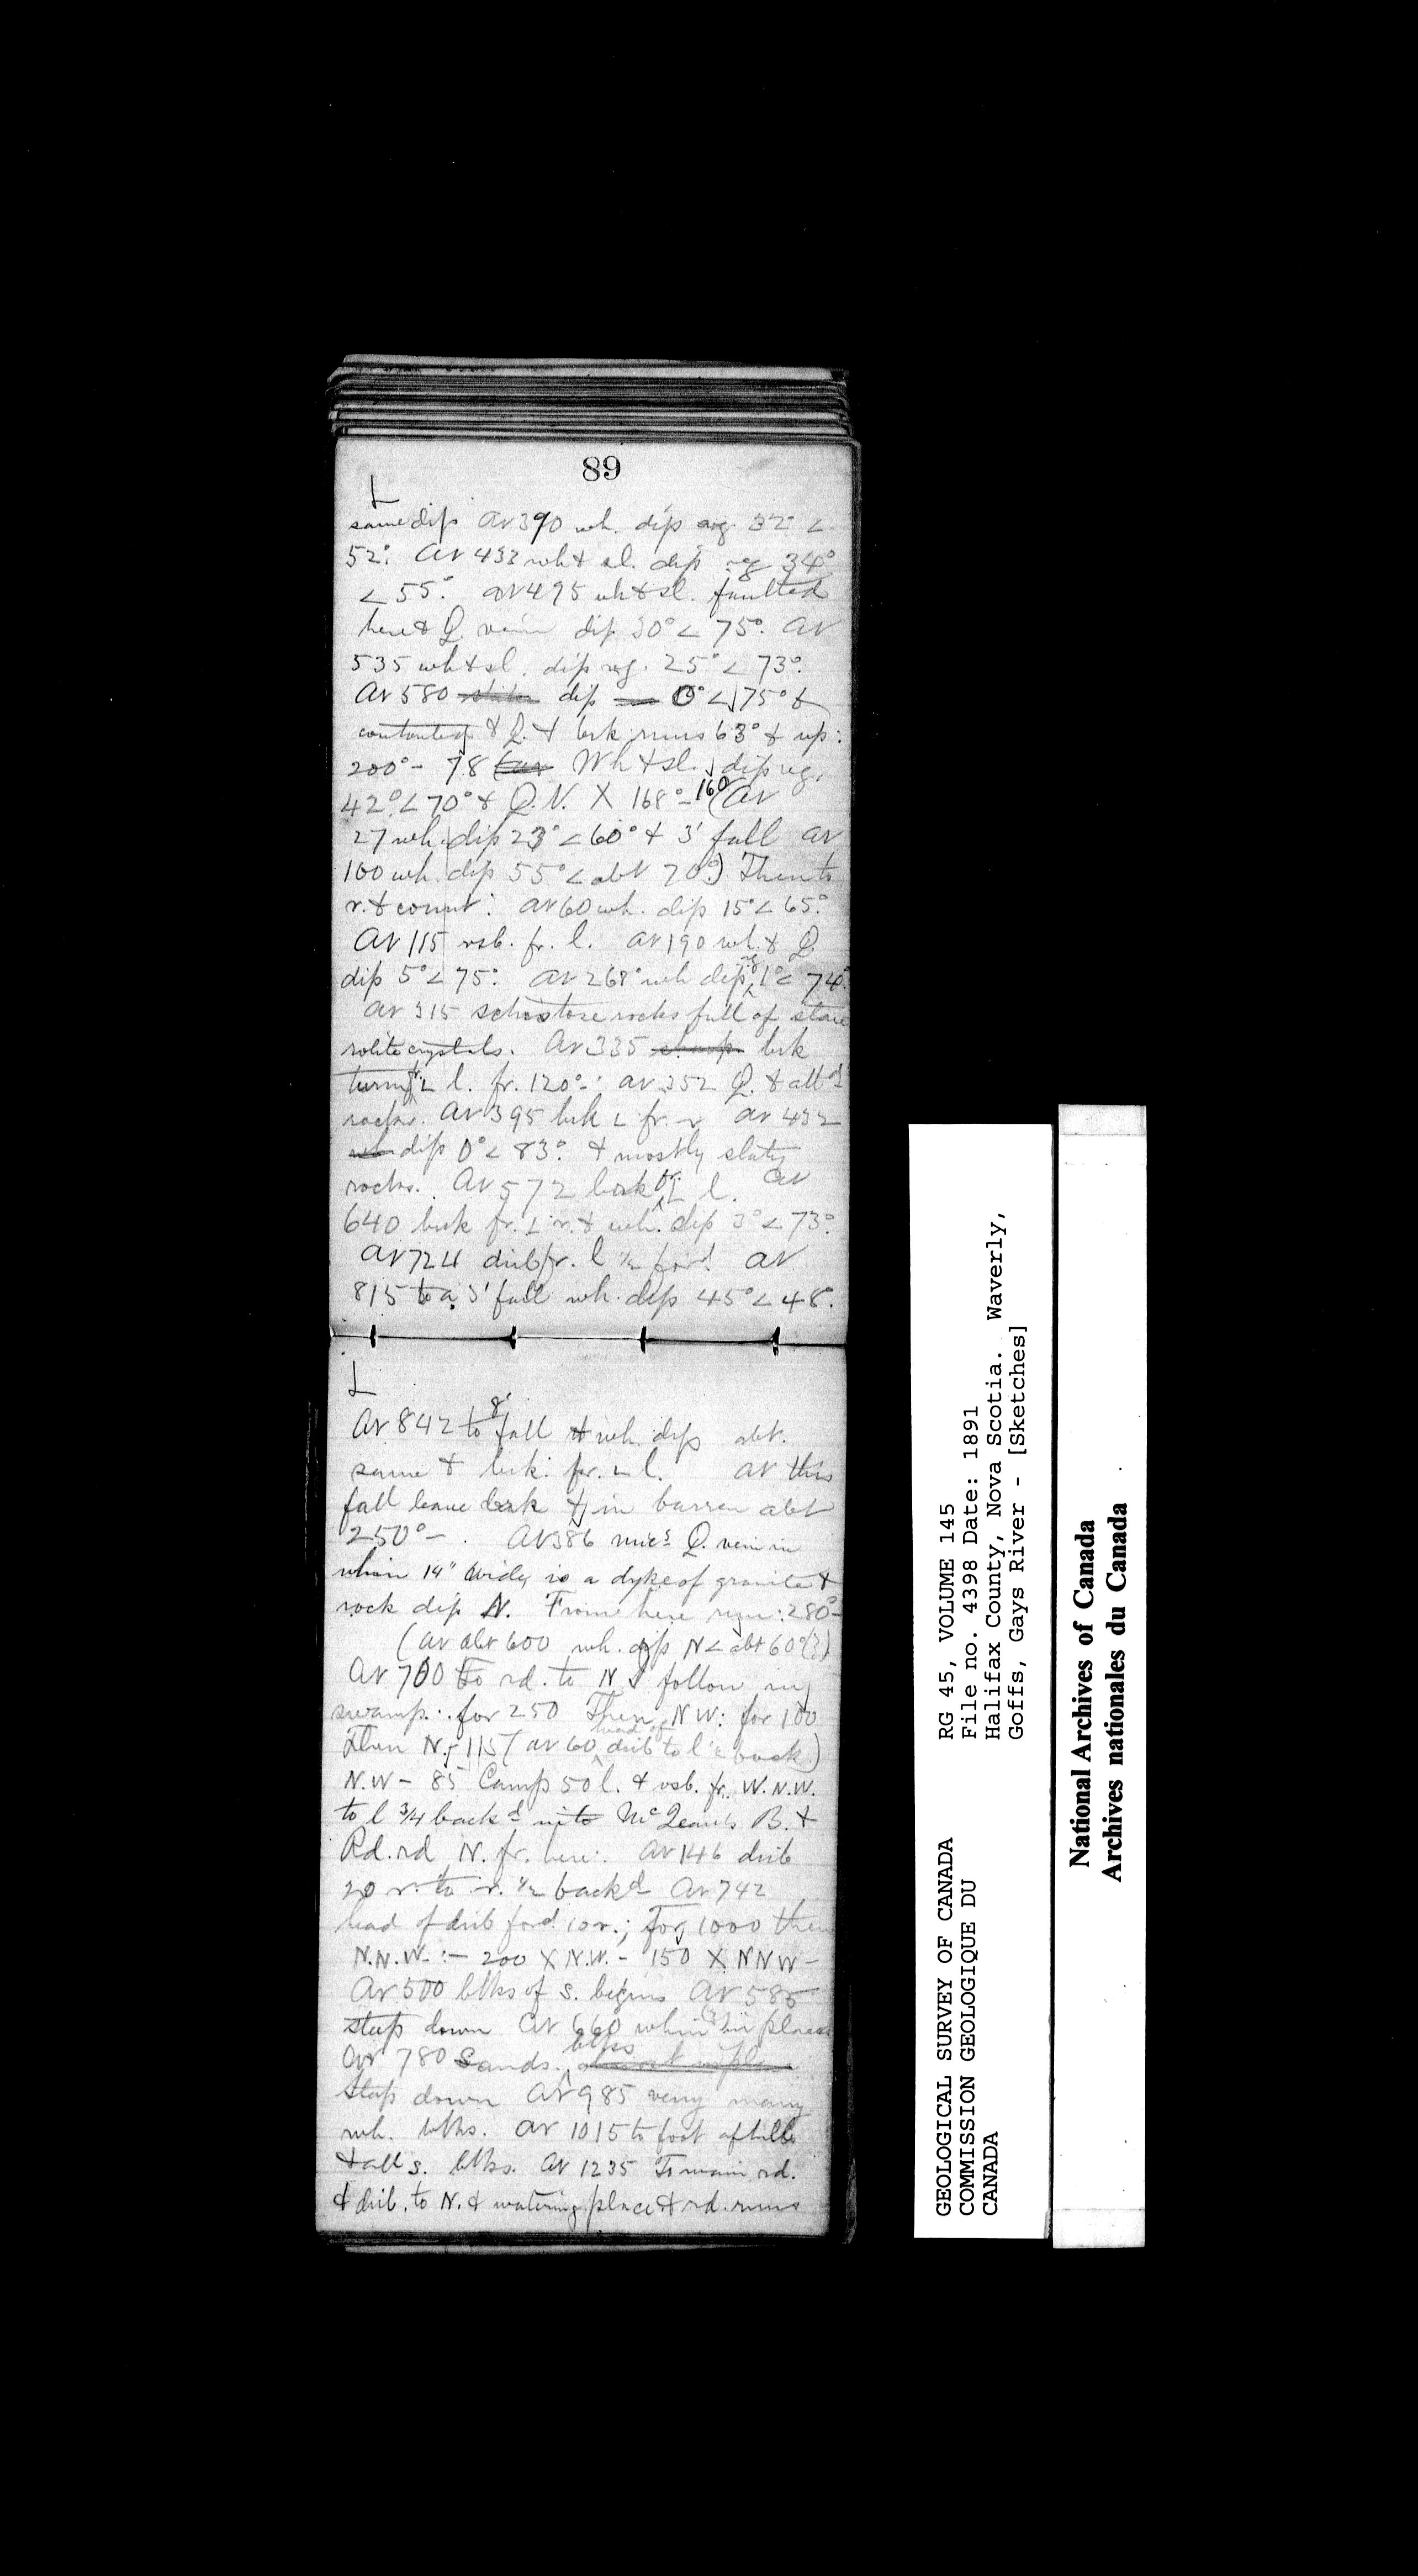 89
L
same dip At 390 wh. dip reg. 32° <
52°. At 432 wh & sl. dip reg 34°
< 55°. at 495 wh & sl. faulted
here & Q. vein dip 30° < 75°. At
535 wh & sl. dip reg. 25° < 73°.
At 580 dip 0° < 75° &
contorted & Q. & brk runs 63° & up:
200° - 78 Wh & sl. dip reg.
42° < 70° & Q.V. X 168° - 160 (At
27 wh. dip 23° < 60° & 3' fall at
100 wh. dip 55° < abt 70°.) Then to
r. & count: At 60 wh. dip 15° < 65°.
At 115 vsb. fr. l. at 190 wh. & Q
dip 5° < 75°. At 268 wh dip reg 1° < 74°.
At 315 schistose rocks full of stau
rolite crystals. At 335 brk
turns fr. L l. fr. 120° -: at 352 Q. & altd
rocks. At 395 brk L fr. r at 432
dip 0° < 83° & mostly slaty
rocks. At 572 brk fr. L l. At
640 brk fr. L r. & wh. dip 3° < 73°.
At 724 drib fr. l ½ ford. At
815 to a 3' fall wh. dip 45° < 48°.
L
At 842 to 8' fall & wh. dip abt.
same & brk. fr. L l. at this
fall leave brk & in barren abt
250° - . At 386 mics Q. vein in
whin 14" wide, is a dyke of granite &
rock dip N. From here run: 280° -
(at abt 600 wh. dip N < abt 60°(?))
At 700 to rd. to N & follow in
swamp: for 250 Then NW: for 100
Then N. - 115 (at 60 head of drib to l ½ back.)
N.W - 85 Camp 50 l. & vsb. fr. W.N.W.
to l ¾ backd into McLean's B. &
Rd. rd N. fr. here: At 146 drib
20 r. to r. ½ backd At 742
head of drib ford 10 r.; for 1000 then
N.N.W. :- 200 X N.W. - 150 X NNW -
At 500 blks of s. begins At 585
steep down At 660 whin (?) in place
At 780 Sands. blks
steep down At 985 very many
wh. blks. At 1015 to foot of hill
& all s. blks. At 1235 To main rd.
& drib. to N. & watering place & rd. runs
GEOLOGICAL SURVEY OF CANADA
COMMISSION GEOLOGIQUE DU
CANADA
RG 45, VOLUME 145
File no. 4398 Date: 1891
Halifax County, Nova Scotia. Waverly,
Goffs, Gays River - [Sketches]
National Archives of Canada
Archives nationales du Canada